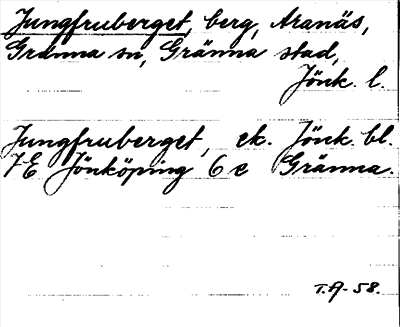 Jungfruberget, berg, Aranäs,
Gränna sn, Gränna stad,
Jönk. l.
Jungfruberget, ek. Jönk. bl.
7E Jönköping 6 e Gränna.
T.A-58.